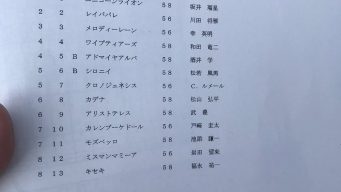 ユニコーンライオン 58 坂井 瑠星
2 2 レイパパレ 56 川田 将雅
3 3 メロディーレーン 56 幸 英明
4 4 ワイプティアーズ 58 和田 竜二
4 5 B アドマイヤアルバ 58 酒井 学
5 6 B シロニイ 58 松若 風馬
5 7 クロノジェネシス 56 C.ルメール
6 8 カデナ 58 松山 弘平
6 9 アリストテレス 58 武 豊
7 10 カレンブーケドール 56 戸崎 圭太
7 11 モズベッロ 58 池添 謙一
8 12 ミスマンマミーア 56 岩田 望来
8 13 キセキ 58 福永 祐一